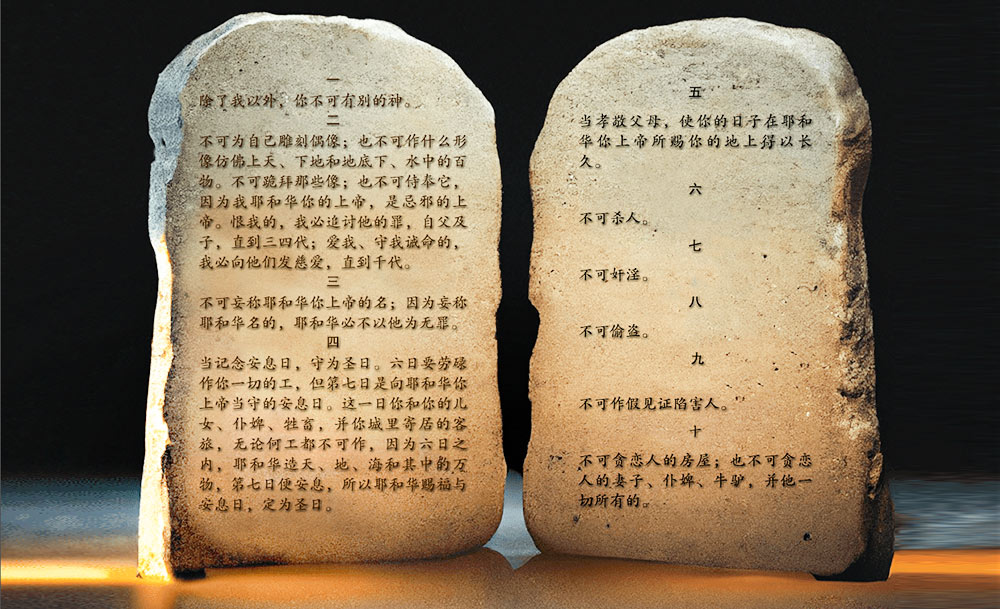 一
除了我以外，你不可有别的神。
二
不可为自己雕刻偶像；也不可作什么形
像仿佛上天、下地和地底下、水中的百
物。不可跪拜那些像；也不可侍奉它，
因为我耶和华你的上帝，是忌邪的上
帝。恨我的，我必追讨他的罪，自父及
子，直到三四代；爱我、守我诫命的，
我必向他们发慈爱，直到千代。
三
不可妄称耶和华你上帝的名；因为妄称
耶和华名的，耶和华必不以他为无罪。
四
当记念安息日，守为圣日。六日要劳碌
作你一切的工，但第七日是向耶和华你
上帝当守的安息日。这一日你和你的儿
女、仆婢、牲畜，并你城里寄居的客
旅，无论何工都不可作，因为六日之
内，耶和华造天、地、海和其中的万
物，第七日便安息，所以耶和华赐福与
安息日，定为圣日。
五
当孝敬父母，使你的日子在耶和
华你上帝所赐你的地上得以长
久。
六
不可杀人。
七
不可奸淫。
八
不可偷盗。
九
不可作假见证陷害人。
十
不可贪恋人的房屋；也不可贪恋
人的妻子、仆婢、牛驴，并他一
切所有的。